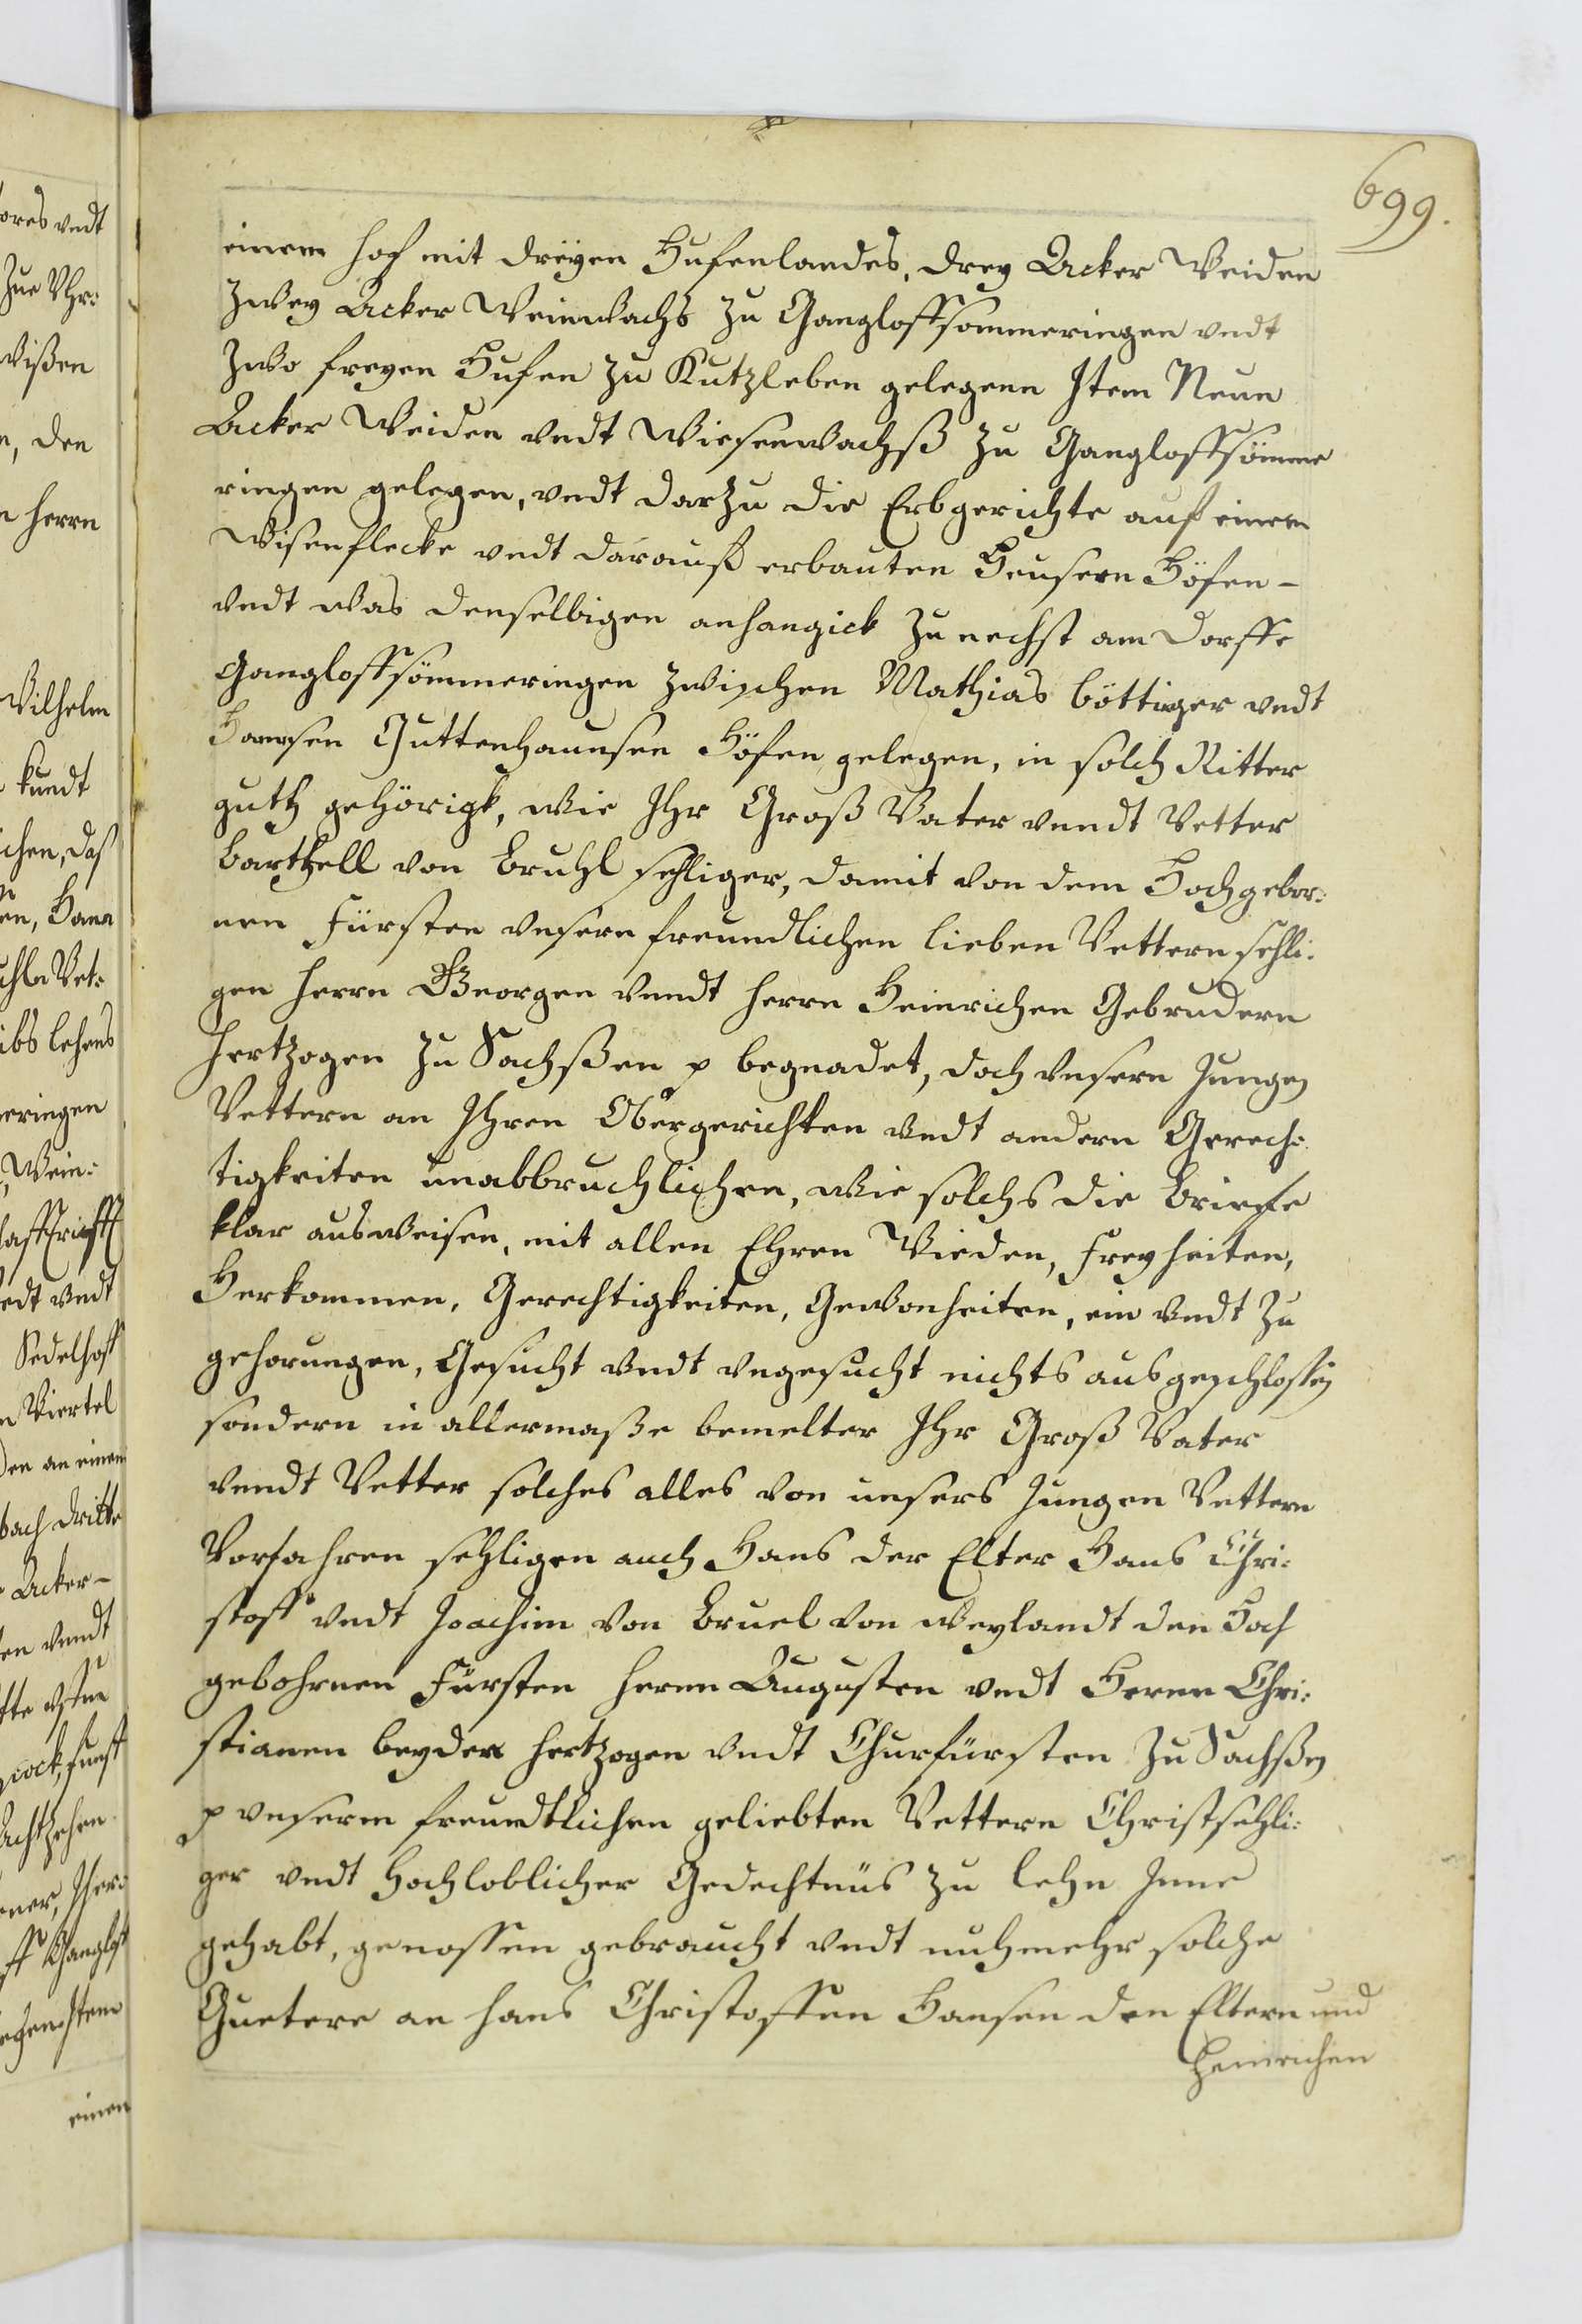 699.
einem hof mit dreyen Hufenlandes, drey Acker Weiden
zwey Acker Weinwachs zu Gangloffsommeringen vndt
zwo freyen Hufen zu Kutzleben gelegenn Item Neun
Acker Weiden vndt Wiesenwachß zu Gangloffsömme
ringen gelegen, vndt darzu die Erbgerichte auf einem
Wisenflecke vndt darauß erbauten Heusern Höfen -
vndt was denselbigen anhangick zu nechst am dorffe
Gangloffsömmeringen zwischen Mathias böttiger vndt
Hannsen Guttenhaunsen Höfen gelegen, in solch Ritter
guth gehörigk, wie Ihr Groß Vater vnndt Vetter
Barthell von Bruhl sehliger, damit von dem Hochgebor:
nen Fürsten vnsern freundlichen lieben Vettern sehli:
gen herrn Georgen vnndt herrn Heinrichen Gebrudern
hertzogen zu Sachßen p begnadet, doch vnsern Jungen
Vettern an Ihren Obergerichten vndt andern Gerech:
tigkeiten unabbruchlichen, wie solchs die briefe
klar ausweisen, mit allen Ehren Wirden, Freyheiten,
Herkommen, Gerechtigkeiten, Gewonheiten, ein vndt zu
gehorungen, Gesucht vndt vngesucht nichts ausgeschlossen
sondern in allermaße bemelter Ihr Groß Vater
vnndt Vetter solches alles von unsers Jungen Vettern
Vorfahren sehligen auch Hans der Elter Hans Chri:
stoff vndt Joachim von Bruel von weylandt den Hoch
gebohrnen Fürsten herrn Augusten vndt Herrn Chri:
stianen beyden hertzogen vndt Churfürsten zu Sachßen
p vnserm freundtlichen geliebten Vettern Christsehli:
ger vndt Hochloblicher Gedechtnüs zu lehn Inne
gehabt, genossen gebraucht vndt nuhmehr solche
Guetere an hans Christoffen Hansen den Eltern und
Heinrichen